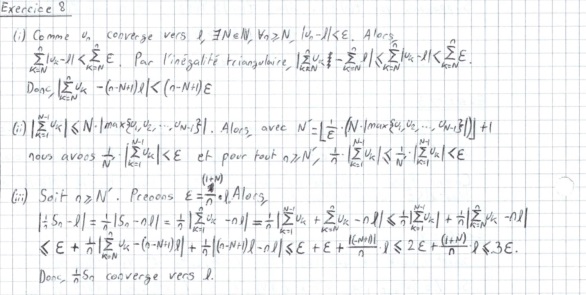 Exercice 8
(i) Comme uₙ converge vers l, ∃N∈ℕ, ∀n≥N, |uₙ-l|<ε. Alors,
∑_{k=N}^{n}|uₖ-l|<∑_{k=N}^{n}ε. Par l'inégalité triangulaire, |∑_{k=N}^{n}uₖ-∑_{k=N}^{n}l|≤∑_{k=N}^{n}|uₖ-l|<∑_{k=N}^{n}ε.
Donc, |∑_{k=N}^{n}uₖ-(n-N+1)l|<(n-N+1)ε
(ii) |∑_{k=1}^{N-1}uₖ|≤N·|max{u₁,u₂,...,u_{N-1}}|. Alors, avec N'=⌊1/ε·(N·|max{u₁,u₂,...,u_{N-1}}|)⌋+1
nous avons 1/N'·|∑_{k=1}^{N-1}uₖ|<ε et pour tout n≥N', 1/n·|∑_{k=1}^{N-1}uₖ|≤1/N'·|∑_{k=1}^{N-1}uₖ|<ε
(iii) Soit n≥N'. Prenons ε=(1+N)/n·l. Alors,
|1/n Sₙ-l|=1/n|Sₙ-nl|=1/n|∑_{k=1}^{n}uₖ-nl|=1/n|∑_{k=1}^{N-1}uₖ+∑_{k=N}^{n}uₖ-nl|≤1/n|∑_{k=1}^{N-1}uₖ|+1/n|∑_{k=N}^{n}uₖ-nl|
≤ε+1/n|∑_{k=N}^{n}uₖ-(n-N+1)l|+1/n|(n-N+1)l-nl|≤ε+ε+|(-N+1)|/n·l≤2ε+(1+N)/n·l≤3ε.
Donc, 1/n Sₙ converge vers l.